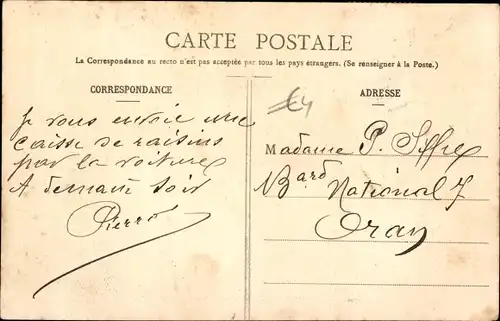 CARTE POSTALE
La Correspondance au recto n'est pas acceptée par tous les pays étrangers. (Se renseigner à la Poste.)
CORRESPONDANCE
Je vous envoie une
caisse de raisins
par la voiture
A demain soir
Pierre
ADRESSE
€4
Madame P. Siffre
Bard National 7
Oran